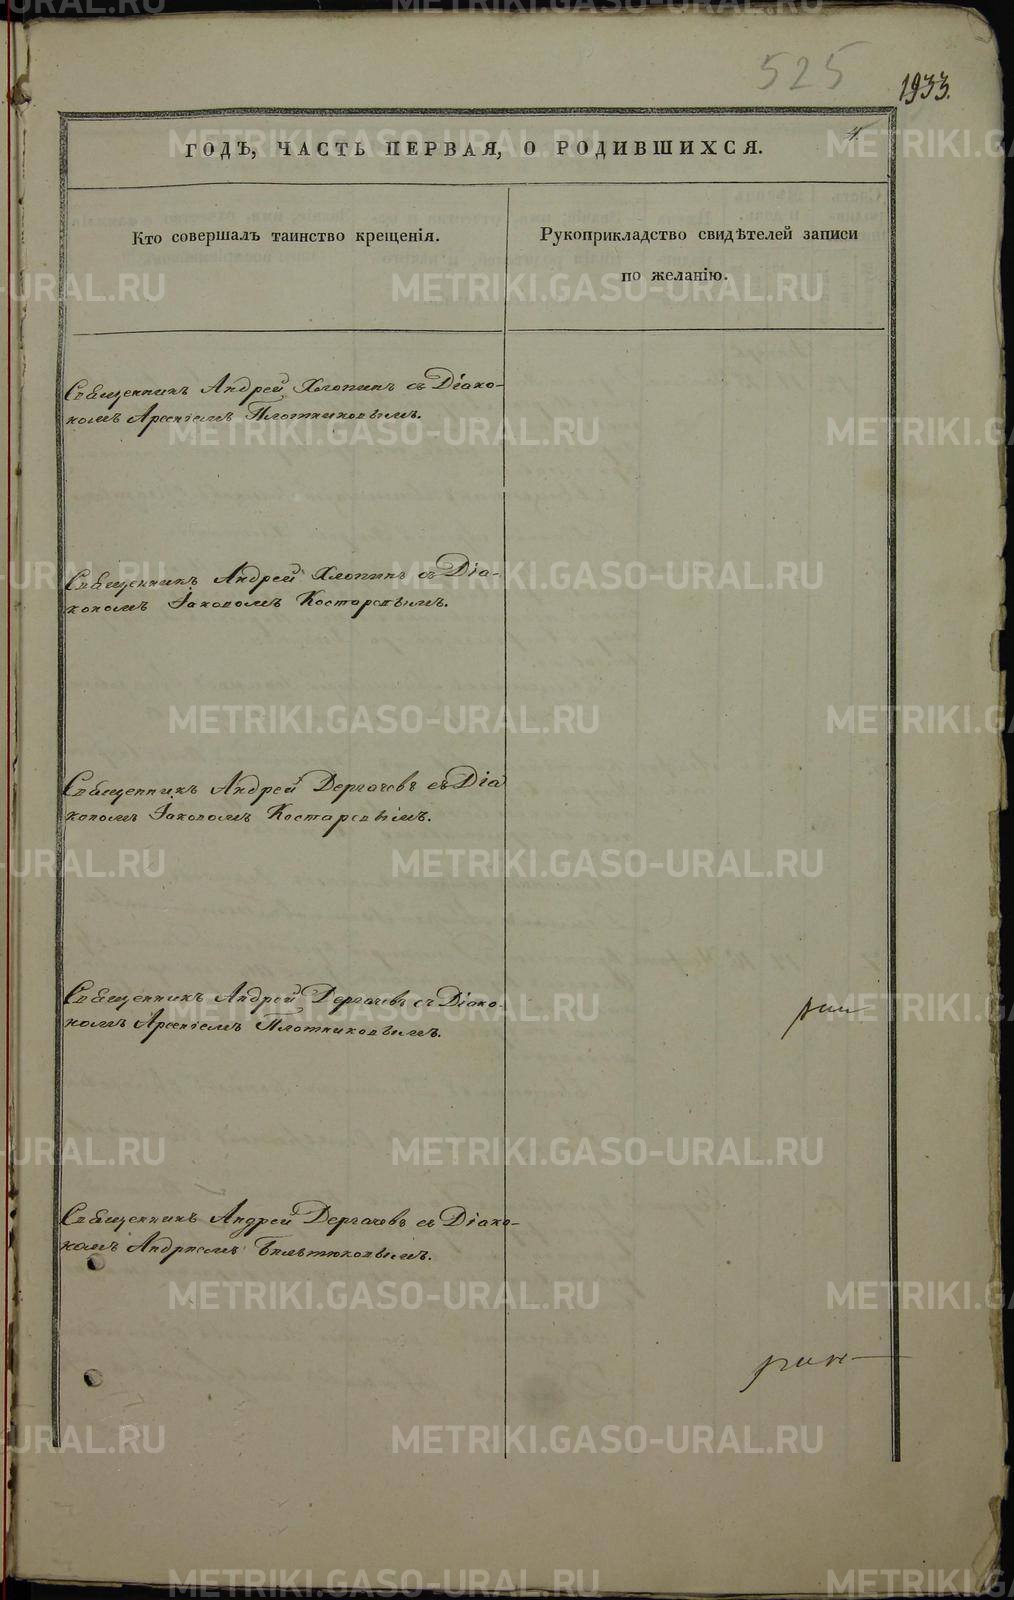 525
1933.
ГОДЪ, ЧАСТЬ ПЕРВАЯ, О РОДИВШИХСЯ.
Кто совершалъ таинство крещенія.
Рукоприкладство свидѣтелей записи
по желанію.
Священникъ Андрей Хлопинъ съ Діако-
номъ Арсеніемъ Плотниковымъ.
Священникъ Андрей Хлопинъ съ Діа-
кономъ Іаковомъ Костаревымъ.
Священникъ Андрей Дергачевъ съ Діа
кономъ Іаковомъ Костаревымъ.
Священникъ Андрей Дергачевъ съ Діако-
номъ Арсеніемъ Плотниковымъ.
Священникъ Андрей Дергачевъ съ Діако-
номъ Андреемъ
METRIKI.GASO-URAL.RU